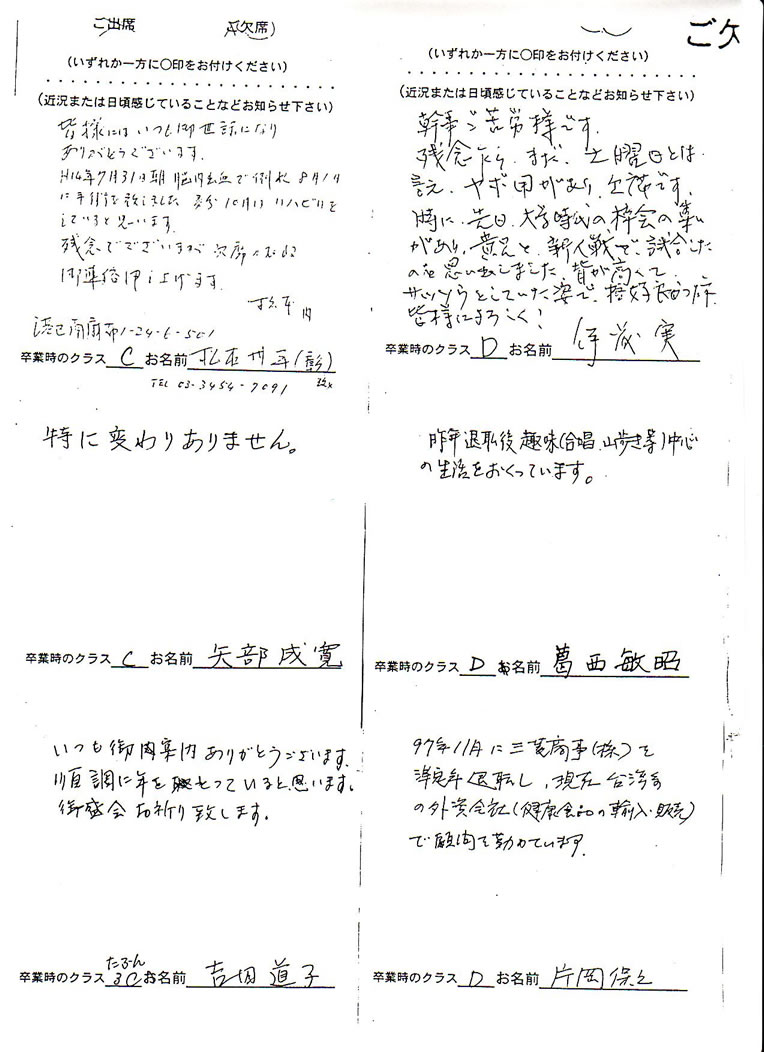 ご出席
欠席)
(いずれか一方に○印をお付けください)
(近況または日頃感じていることなどお知らせ下さい)
皆様にはいつも御世話になり
ありがとうございます。
H14年7月31日朝脳内出血で倒れ 8月1日
に手術を致しました 多分10月は リハビリを
していると思います。
残念でございますが欠席
御準備申し上げます。
内
港区南麻布1-24-6-501
卒業時のクラス C お名前
TEL 03-3454-7091
特に変わりありません。
卒業時のクラス C お名前 矢部成寛
いつも御案内ありがとうございます。
順調に年をとっていると思います。
御盛会お祈り致します。
たぶん
卒業時のクラス 3C お名前 吉田道子
ご欠
(いずれか一方に○印をお付けください)
(近況または日頃感じていることなどお知らせ下さい)
幹事ご苦労様です。
残念ながら、まだ、土曜日とは
言え、ヤボ用があり、欠席です。
時に、先日、大学時代の 会の集い
があり、貴兄と、新人戦で、試合した
のを思い出しました。背が高くて、
サッソウとしていた姿で、格好良かった
皆様によろしく!
卒業時のクラス D お名前 実
昨年退職後趣味(合唱、山歩き等)中心
の生活をおくっています。
卒業時のクラス D お名前 葛西敏昭
97年11月に三菱商事(株)を
退職し、現在台湾系
の外資会社(健康食品の輸入・販売)
で顧問を勤めています。
卒業時のクラス D お名前 片岡保